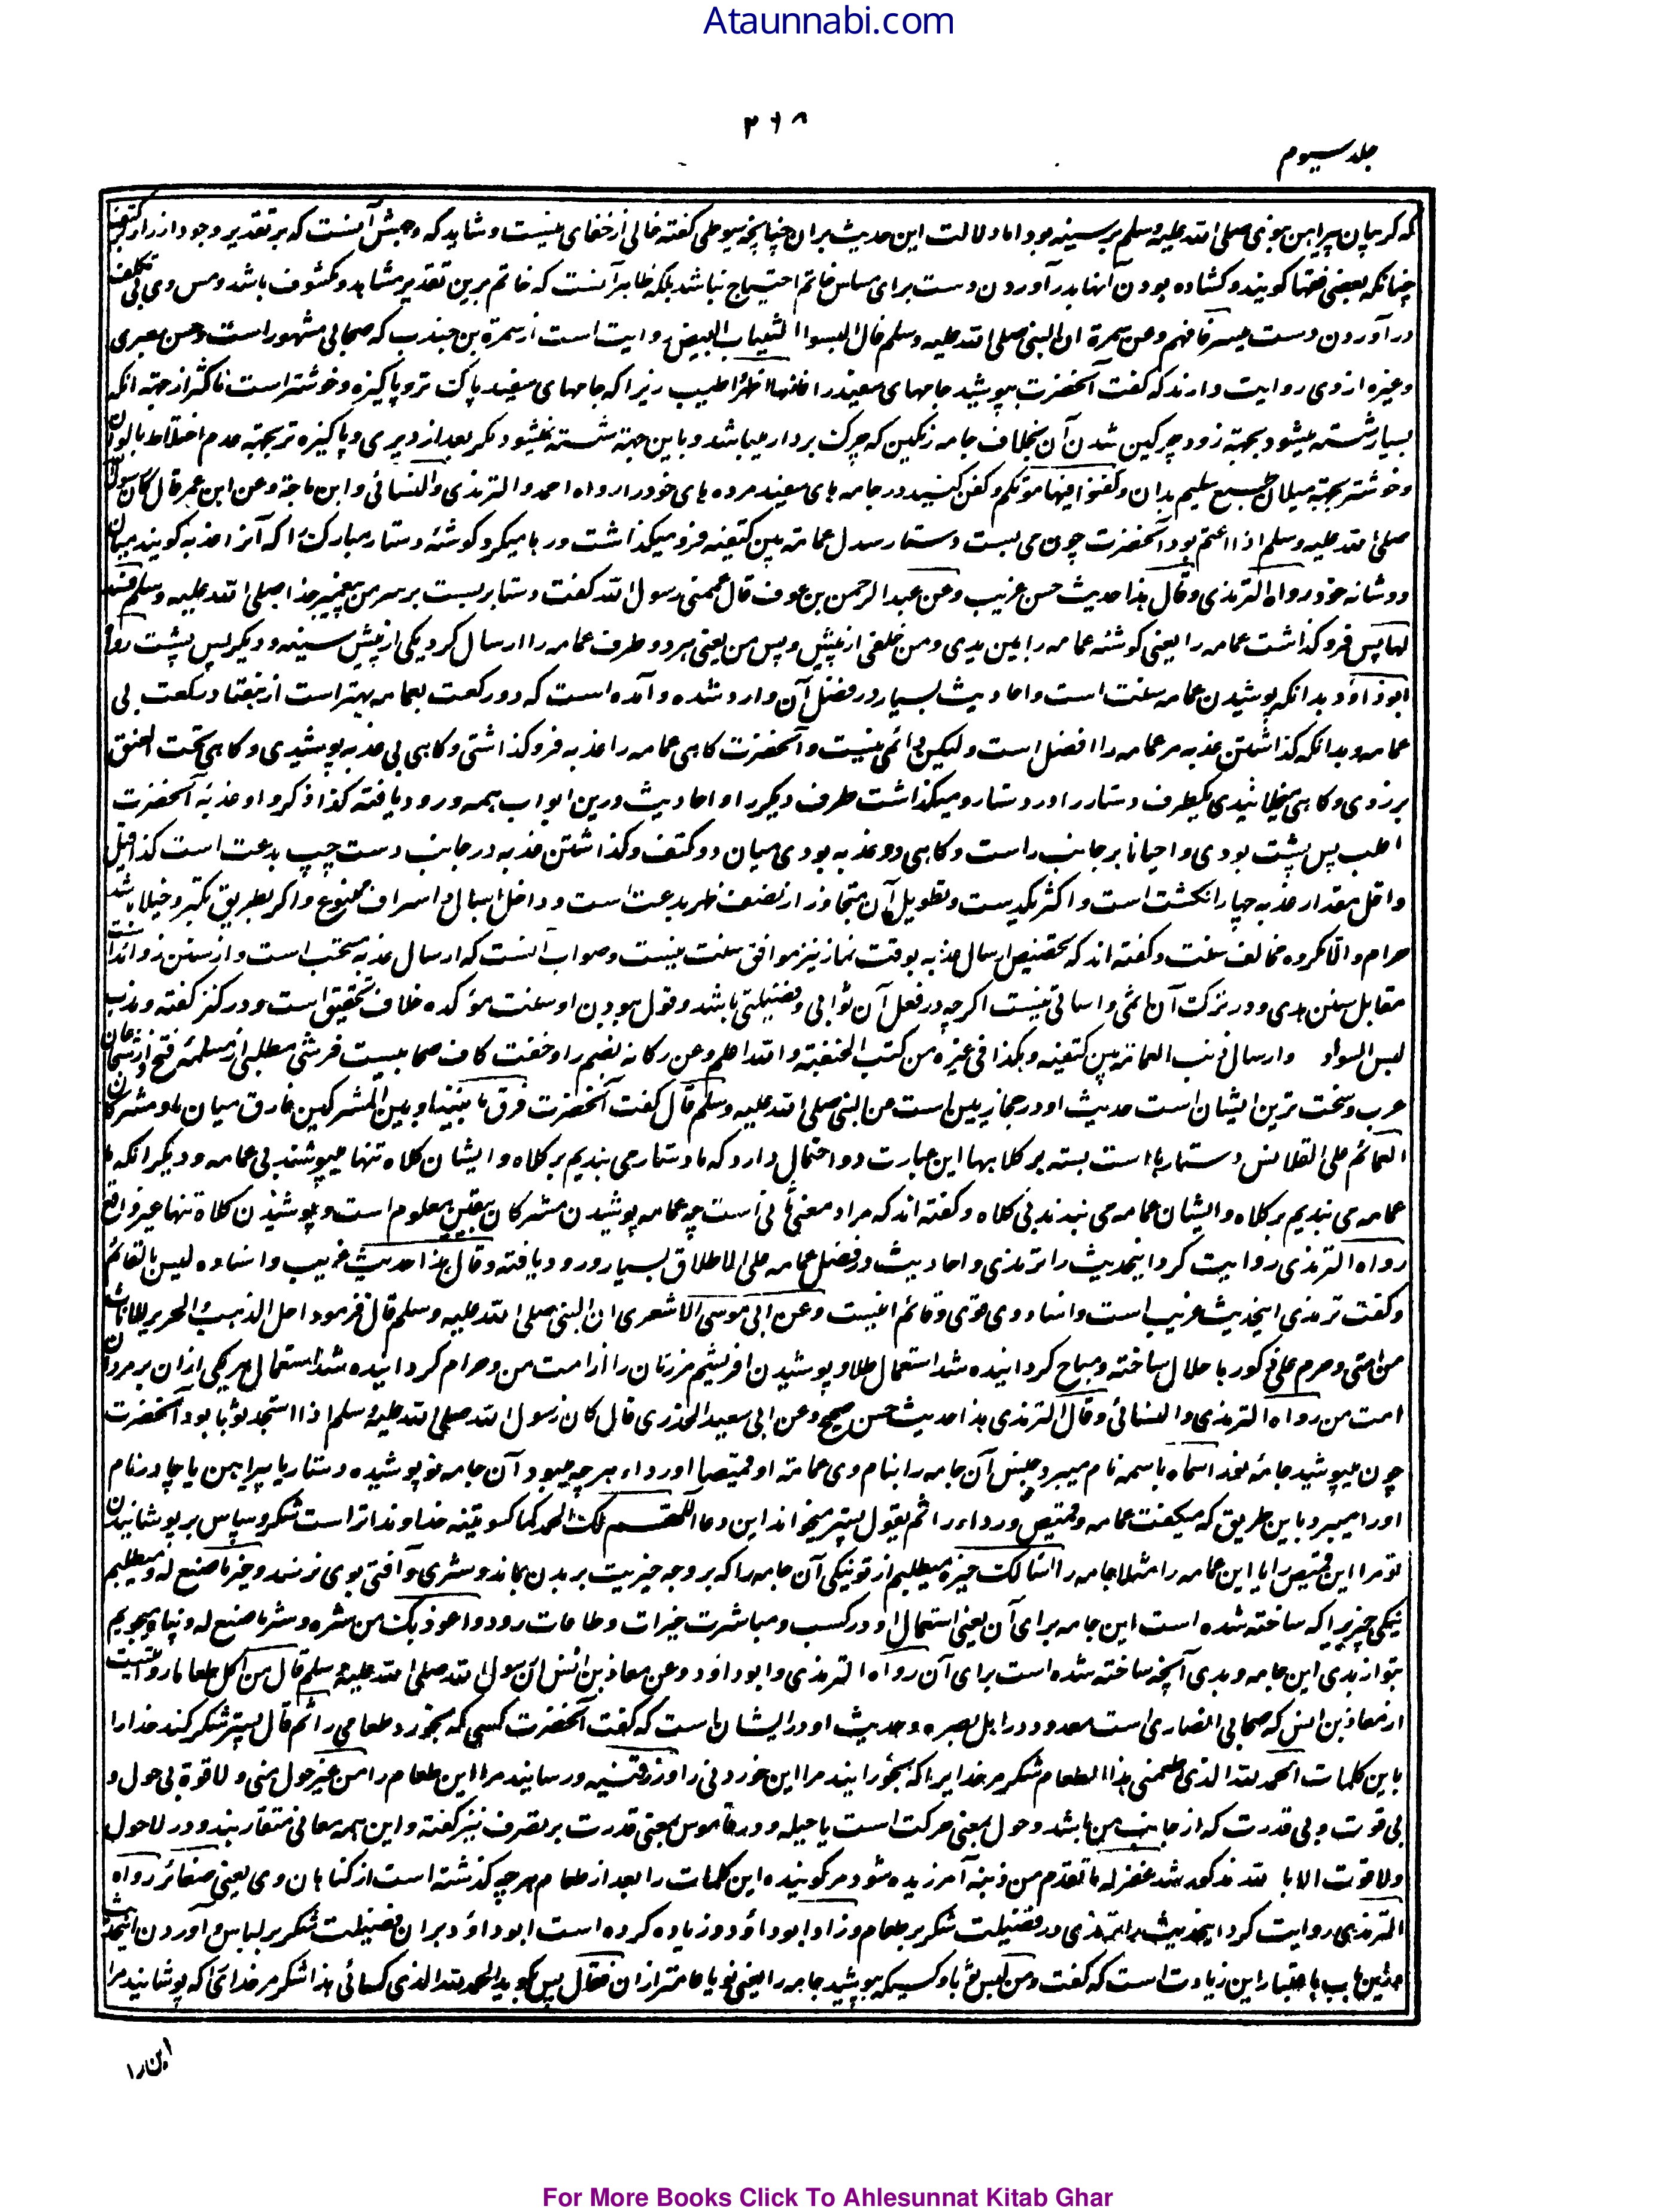 Ataunnabi.com
۲۶۸
جلد سیوم
که گریبان پیراهن نبوی صلی الله علیه وسلم بر سینه بود اما دلالت این حدیث بران چنانچه سیوطی گفته خالی از خفای نیست و شاید که وجهش آنست که بر تقدیر وجود ازرار
چنانکه بعضی فقها گویند و کشاده بودن آنها بدر آوردن دست برای مساس خاتم احتیاج نباشد بلکه ظاهر آنست که خاتم برین تقدیر مشاهد و مکشوف باشد و مس وی بی تکلف
در آوردن دست میسر فافهم وعن سمرة ان النبی صلی الله علیه وسلم قال البسوا الثیاب البیض روایت است از سمرة بن جندب که صحابی مشهور است و حسن بصری
وغیره از وی روایت دارند که گفت آنحضرت بپوشید جامهای سفید را فانها اطهر واطیب زیرا که جامهای سفید پاک تر و پاکیزه و خوشتر است پاکتر از جهة انکه
بسیار شسته میشود بجهة زود چرکین شدن آن بخلاف جامه رنگین که چرک بردار میباشد و باین جهة شسته نمیشود مگر بعد از دیری و پاکیزه تر بجهة عدم اختلاط بالوان
و خوشتر بجهة میلان طبع سلیم بدان وکفنوا فیها موتکم و کفن کنید در جامه های سفید مرده های خود را رواه احمد والترمذی والنسائی وابن ماجة وعن ابن عمر قال کان رسول الله
صلی الله علیه وسلم اذا اعتم بود آنحضرت چون می بست دستار سدل عمامته بین کتفیه فرو میگذاشت و رها میکرد گوشه دستار مبارک را که آنرا عذبه گویند میان
دو شانه خود رواه الترمذی وقال هذا حدیث حسن غریب وعن عبد الرحمن بن عوف قال عممنی رسول الله گفت دستار بست بر سر من پیغمبر خدا صلی الله علیه وسلم فسد
لها پس فرو گذاشت عمامه را یعنی گوشه عمامه را بین یدی ومن خلفی از پیش و پس من یعنی هر دو طرف عمامه را ارسال کرد یکی از پیش سینه و دیگر پس پشت رواه
ابو داؤد بدانکه پوشیدن عمامه سنت است و احادیث بسیار در فضل آن وارد شده و آمده است که دو رکعت بعمامه بهتر است از هفتاد رکعت بی
عمامه و بدانکه گذاشتن عذبه مر عمامه را افضل است ولیکن دائمی نیست و آنحضرت گاهی عمامه را عذبه فرو گذاشتی و گاهی بی عذبه پوشیدی و گاهی تحت العنق
برزدی و گاهی میخلانیدی یکطرف دستار را در دستار و میگذاشت طرف دیگر را و احادیث درین ابواب همه ورود یافته کذا ذکروا و عذبۀ آنحضرت
اغلب پس پشت بودی و احیانا بر جانب راست و گاهی دو عذبه بودی میان دو کتف و گذاشتن عذبه در جانب دست چپ بدعت است کذا قیل
واقل مقدار عذبه چهار انگشت است و اکثر یکدست و تطویل آن متجاوز از نصف ظهر بدعت است و داخل اسبال و اسراف ممنوع و اگر بطریق تکبر و خیلا باشد
حرام والا مکروه مخالف سنت و گفته اند که تخصیص ارسال عذبه بوقت نماز نیز موافق سنت نیست و صواب آنست که ارسال عذبه مستحب است و از سنن زوائد است
مقابل سنن هدی و در ترک آن اثمی و اسائتی نیست اگر چه در فعل آن ثوابی و فضیلتی باشد و قول ببودن او سنت مؤکده خلاف تحقیق است و در کنز گفته وندب
لبس السواد وارسال ذنب العمامة بین کتفیه وهکذا فی غیره من کتب الحنفیة والله اعلم وعن رکانه بضم را و خفت کاف صحابیست قرشی مطلبی از مسلمه فتح از شجاعان
عرب و سخت ترین ایشان است حدیث او در حجازیین است عن النبی صلی الله علیه وسلم قال گفت آنحضرت فرق ما بیننا وبین المشرکین فارق میان ما و مشرکان
العمائم علی القلانس دستارها است بسته بر کلاهها این عبارت دو احتمال دارد که ما دستار می بندیم بر کلاه و ایشان کلاه تنها میپوشند بی عمامه و دیگر انکه ما
عمامه می بندیم بر کلاه و ایشان عمامه می بندند بی کلاه و گفته اند که مراد معنی ثانی است چه عمامه پوشیدن مشرکان بیقین معلوم است و پوشیدن کلاه تنها غیر واقع
رواه الترمذی روایت کرد اینحدیث را ترمذی و احادیث در فضل عمامه علی الاطلاق بسیار ورود یافته وقال هذا حدیث غریب واسناده لیس بالقائم
و گفت ترمذی اینحدیث غریب است و اسناد وی قوی و قائم نیست وعن ابی موسی الاشعری ان النبی صلی الله علیه وسلم قال فرمود احل الذهب والحریر للاناث
من امتی وحرم علی ذکورها حلال ساخته و مباح گردانیده شد استعمال طلا و پوشیدن ابریشم مر زنان را از امت من و حرام گردانیده شد استعمال هر یکی ازان بر مردان
امت من رواه الترمذی والنسائی وقال الترمذی هذا حدیث حسن صحیح وعن ابی سعید الخدری قال کان رسول الله صلی الله علیه وسلم اذا استجد ثوبا بود آنحضرت
چون میپوشید جامۀ نو سماه باسمه نام میبرد جنس آن جامه را بنام وی عمامة او قمیصا او رداء هر چه میبود آن جامه نو پوشیده دستار یا پیراهن یا چادر نام
او را میبرد باین طریق که میگفت عمامه و قمیص و رداء را ثم یقول پستر میخواند این دعا اللهم لک الحمد کما کسوتنیه خداوندا ترا است شکر و سپاس بر پوشانیدن
تو مرا این قمیص را یا این عمامه را مثلا جامه را اسالک خیره میطلبم از تو نیکی آن جامه را که بر وجه خیریت بر بدن بماند و شری و آفتی بوی نرسد وخیر ما صنع له و میطلبم
نیکی چیزیرا که ساخته شده است این جامه برای آن یعنی استعمال او در کسب و مباشرت خیرات و طاعات رود واعوذ بک من شره وشر ما صنع له و پناه میجویم
بتو از بدی این جامه و بدی آنچه ساخته شده است برای آن رواه الترمذی وابو داؤد وعن معاذ بن انس ان رسول الله صلی الله علیه وسلم قال من اکل طعاما روایت است
از معاذ بن انس که صحابی انصاری است معدود در اهل بصره و حدیث او در ایشان است که گفت آنحضرت کسی که بخورد طعامی را ثم قال پستر شکر کند خدا را
باین کلمات الحمد لله الذی اطعمنی هذا الطعام شکر مر خدایرا که بخورانید مرا این خوردنی را ورزقنیه و رسانید مرا این طعام را من غیر حول منی ولا قوة بی حول و
بی قوت و بی قدرت که از جانب من باشد و حول بمعنی حرکت است یا حیله و در قاموس بمعنی قدرت بر تصرف نیز گفته و این همه معانی متقاربند و در لاحول
ولا قوت الا بالله مذکور شد غفر له ما تقدم من ذنبه آمرزیده شود مر گوینده این کلمات را بعد از طعام هر چه گذشته است از گناهان وی یعنی صغائر رواه
الترمذی روایت کرد اینحدیث را ترمذی در فضیلت شکر بر طعام وزاد ابو داؤد و زیاده کرده است ابو داؤد بران فضیلت شکر بر لباس و آوردن اینحدیث
درین باب باعتبار این زیادت است که گفت ومن لبس ثوبا و کسیکه بپوشید جامه را یعنی نو یا عامتر ازان فقال پس بگوید الحمد لله الذی کسانی هذا شکر مر خدای را که پوشانید مرا
این را
For More Books Click To Ahlesunnat Kitab Ghar